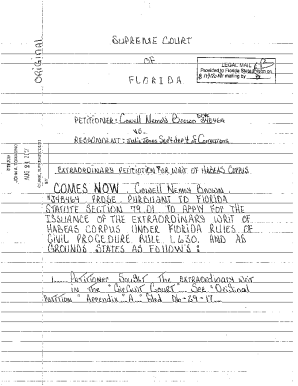 ORIGINAL
SUPREME COURT
OF
FLORIDA
LEGAL MAIL
Provided to Florida State Prison on
for mailing by
PETITIONER: Cowell Nemas Brown
#J48464
VS.
RESPONDANT: Julie Jones Sect. dept of Corrections
EXTRAORDINARY PETITION FOR WRIT OF HABEAS CORPUS
COMES NOW, Cowell Nemas Brown
#J48464 PROSE, PURSUANT TO FLORIDA
STATUTE SECTION 79.01 TO APPLY FOR THE
ISSUANCE OF THE EXTRAORDINARY WRIT OF
HABEAS CORPUS UNDER FLORIDA RULES OF
CIVIL PROCEDURE RULE 1.630. AND AS
GROUNDS STATES AS FOLLOWS:
1. Petitioner Sought THE EXTRAORDINARY WRIT
IN THE "CIRCUIT COURT". See "Original
PETITION" Appendix "A." filed 06-29-17